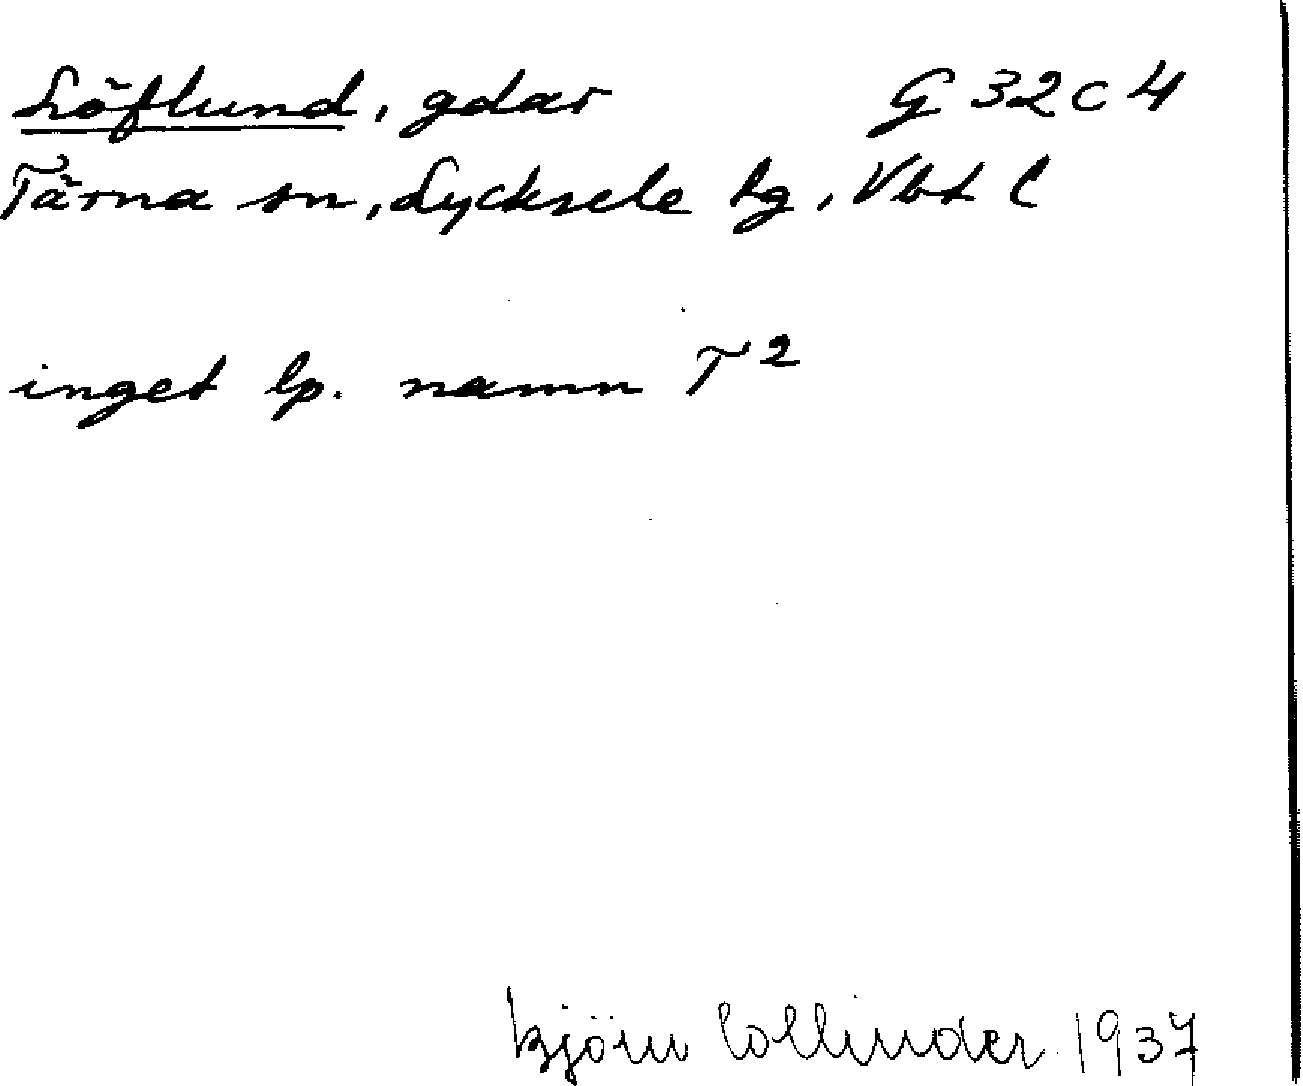 Löflund, gdar G 32 c 4
Tärna sn, Lycksele lg, Vbt l
inget lp. namn T²
Björn Collinder 1937